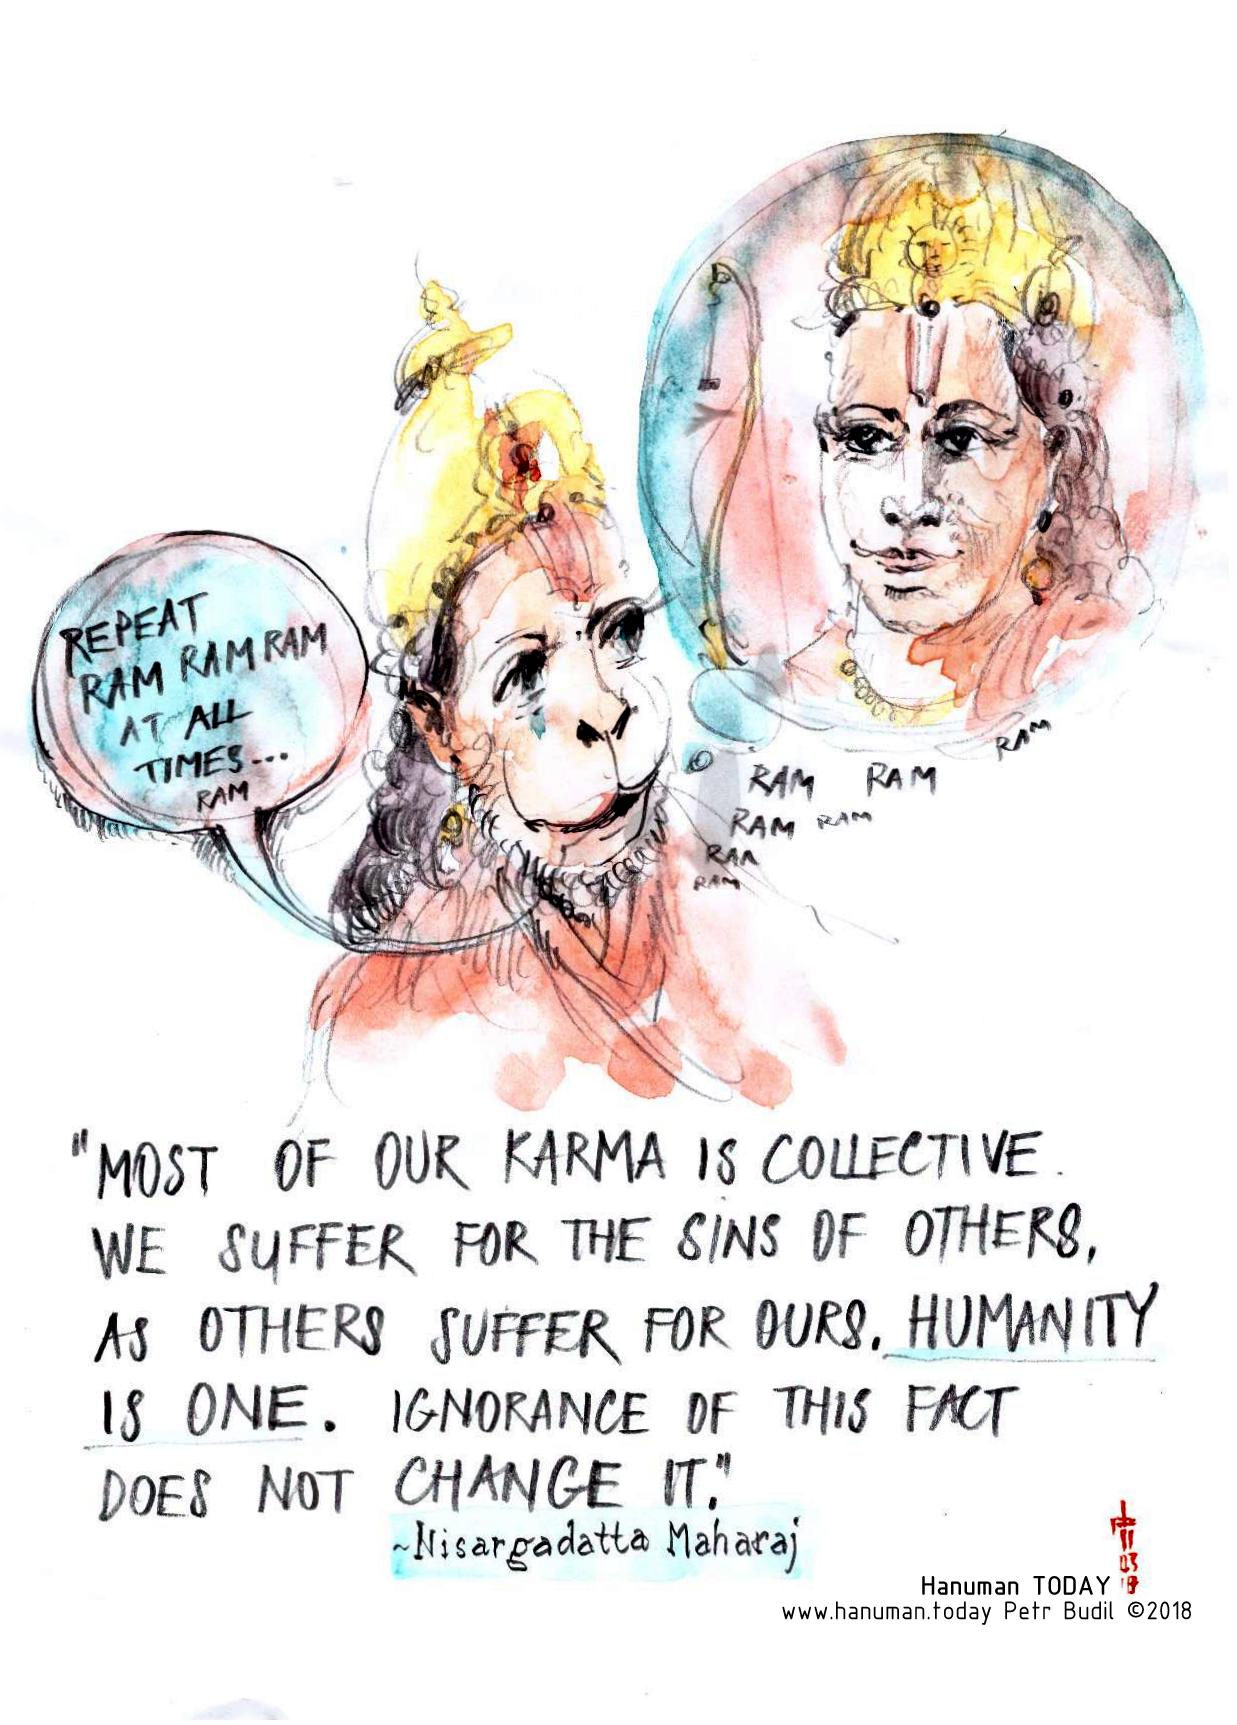 REPEAT
RAM RAM RAM
AT ALL
TIMES...
RAM
RAM
RAM RAM
RAM RAM
RAM
RAM
"MOST OF OUR KARMA IS COLLECTIVE.
WE SUFFER FOR THE SINS OF OTHERS,
AS OTHERS SUFFER FOR OURS. HUMANITY
IS ONE. IGNORANCE OF THIS FACT
DOES NOT CHANGE IT."
~Nisargadatta Maharaj
11
03
18
Hanuman TODAY
www.hanuman.today Petr Budil ©2018